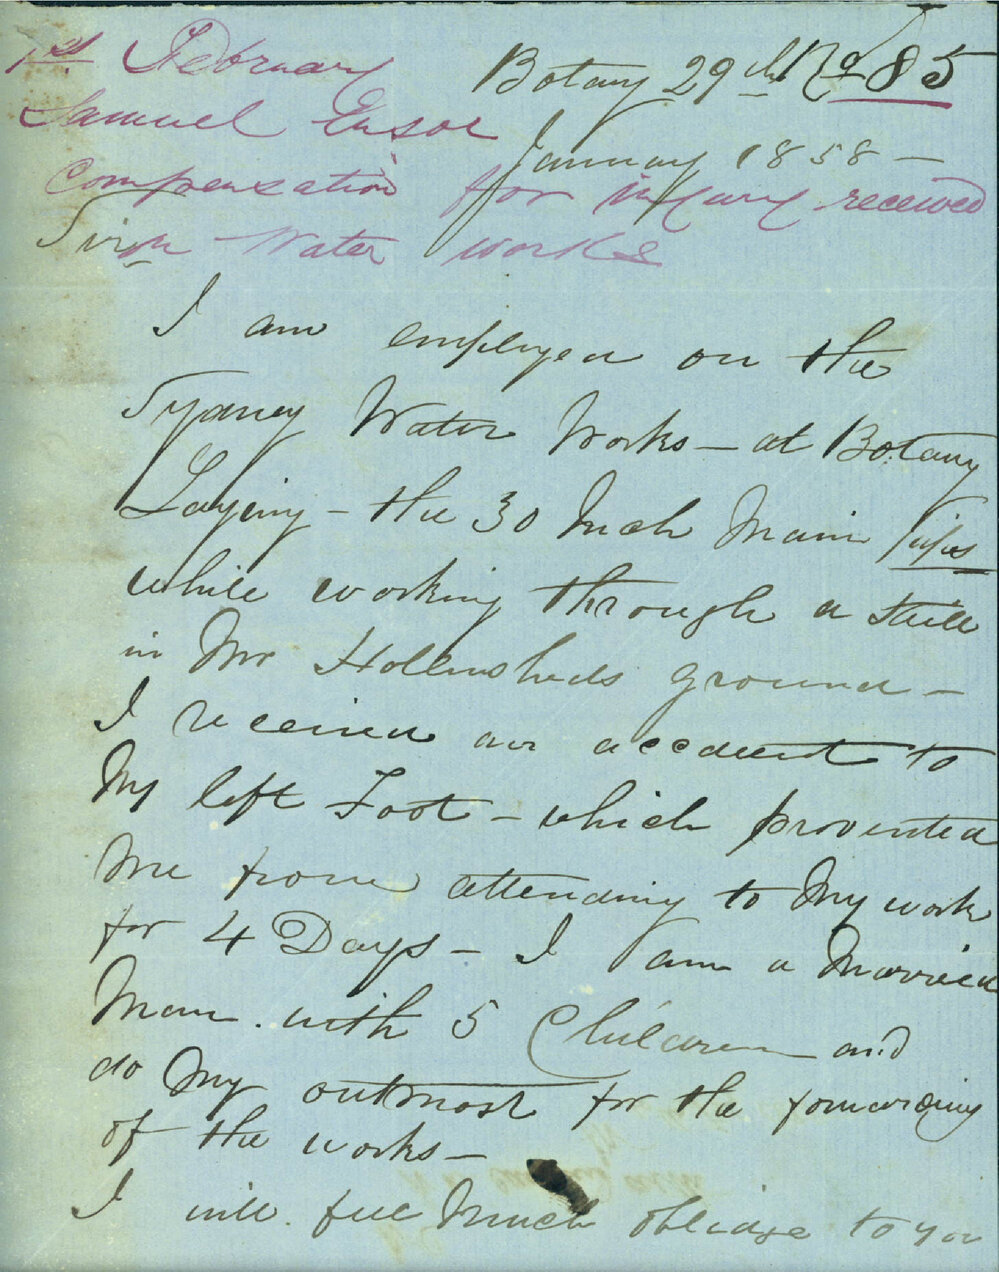 1st February
Botany 29th No 85
Samuel Ensor
January 1858 —
Compensation for injury received
Water works
Sir
I am employed on the
Sydney Water Works — at Botany
Laying — the 30 Inch Main pipes
while working through a
in Mr Hollinsheds ground —
I received an accedent to
My left Foot — which provented
Me from attending to My work
for 4 Days — I am a Married
Man . with 5 Children and
do My outmost for the forwarding
of the works —
I will feel Much oblidge to you